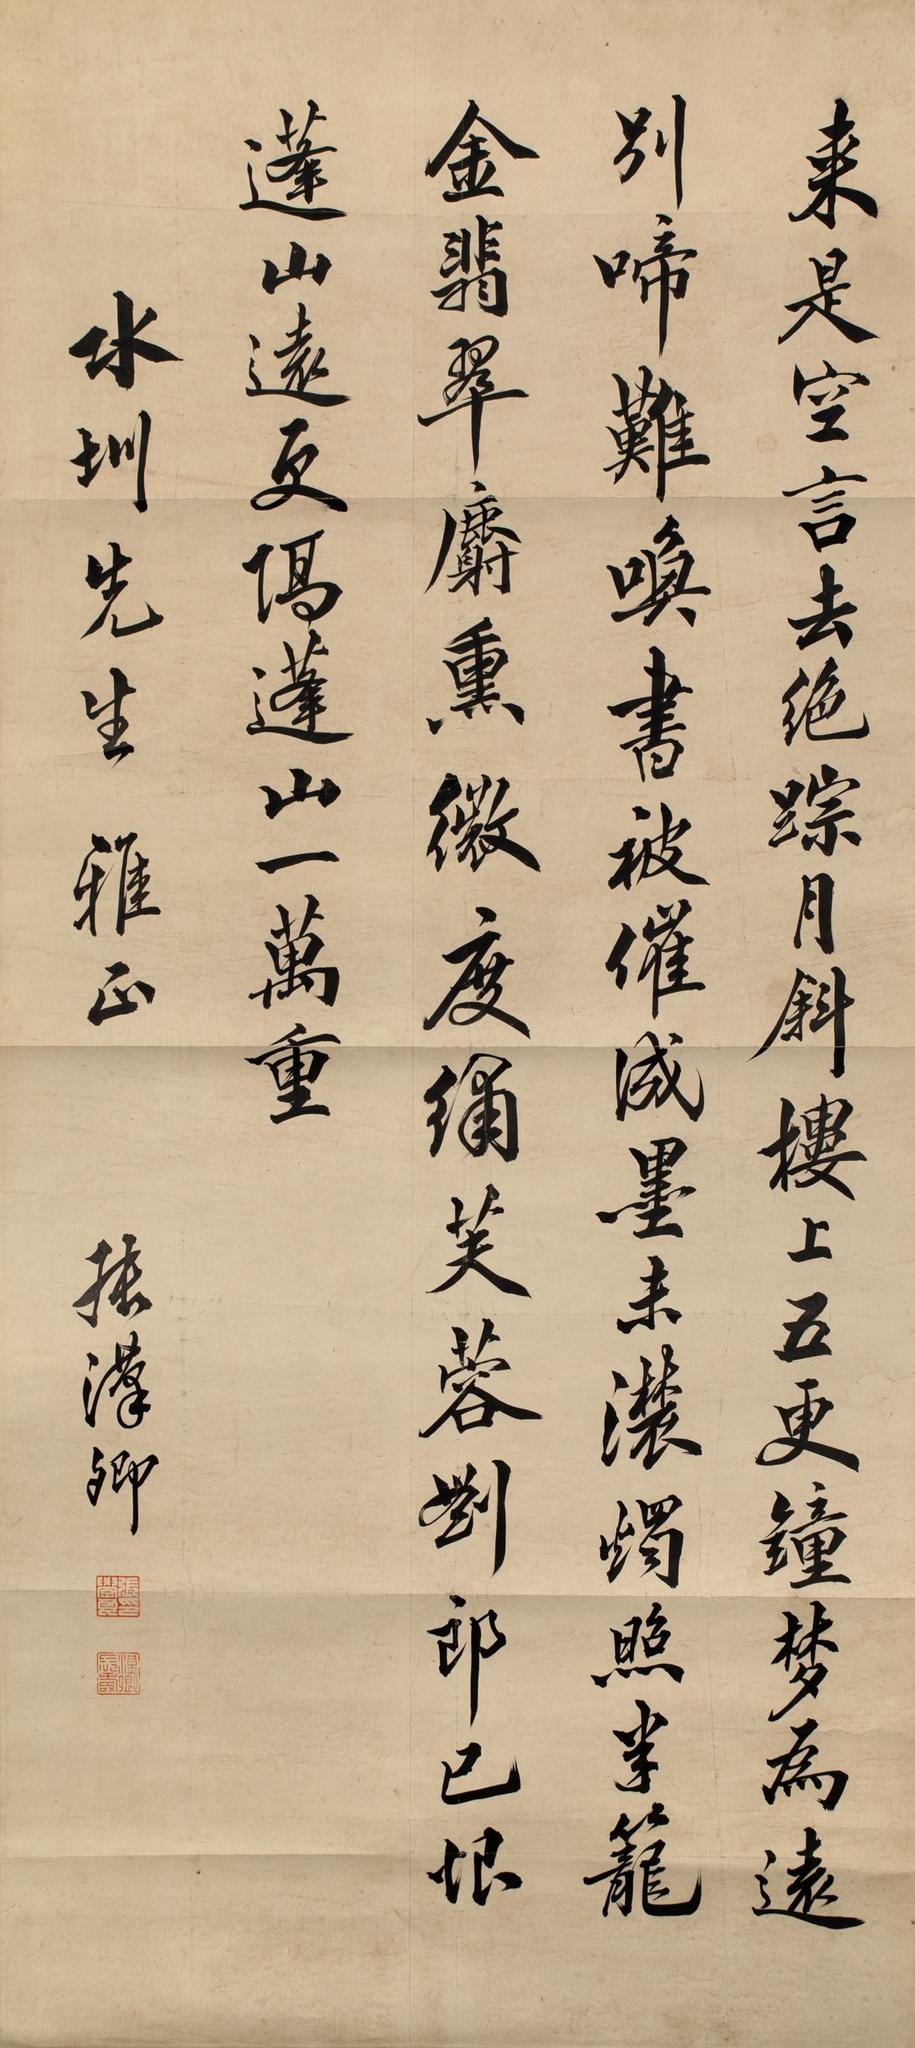 来是空言去絶踪月斜樓上五更鐘梦為遠
別啼難喚書被催成墨未濃燭照半籠
金翡翠麝熏微度繡芙蓉劉郎已恨
蓬山遠更隔蓬山一萬重
水圳先生 雅正 張漢卿